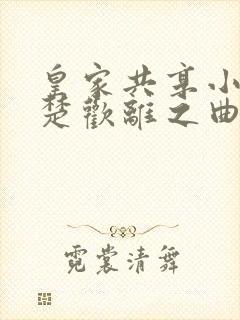 皇家共享小
楚歡離之曲
霓裳清舞